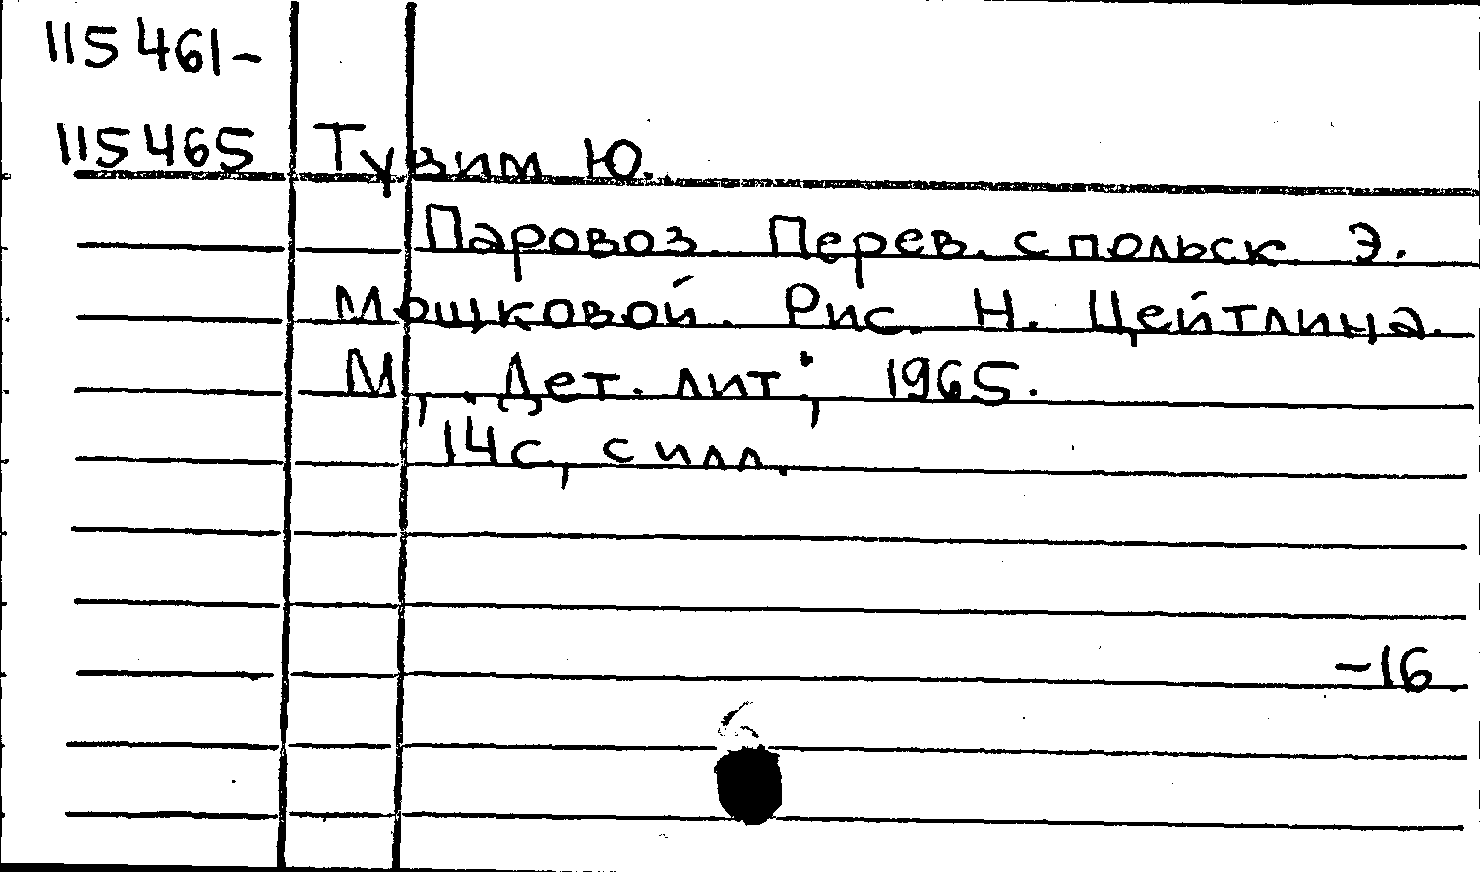 115461-
115465 Тувим Ю.
Паровоз. Перев. с польск. Э.
Мошковой. Рис. Н. Цейтлина.
М., Дет. лит., 1965.
14с, с илл.
-16